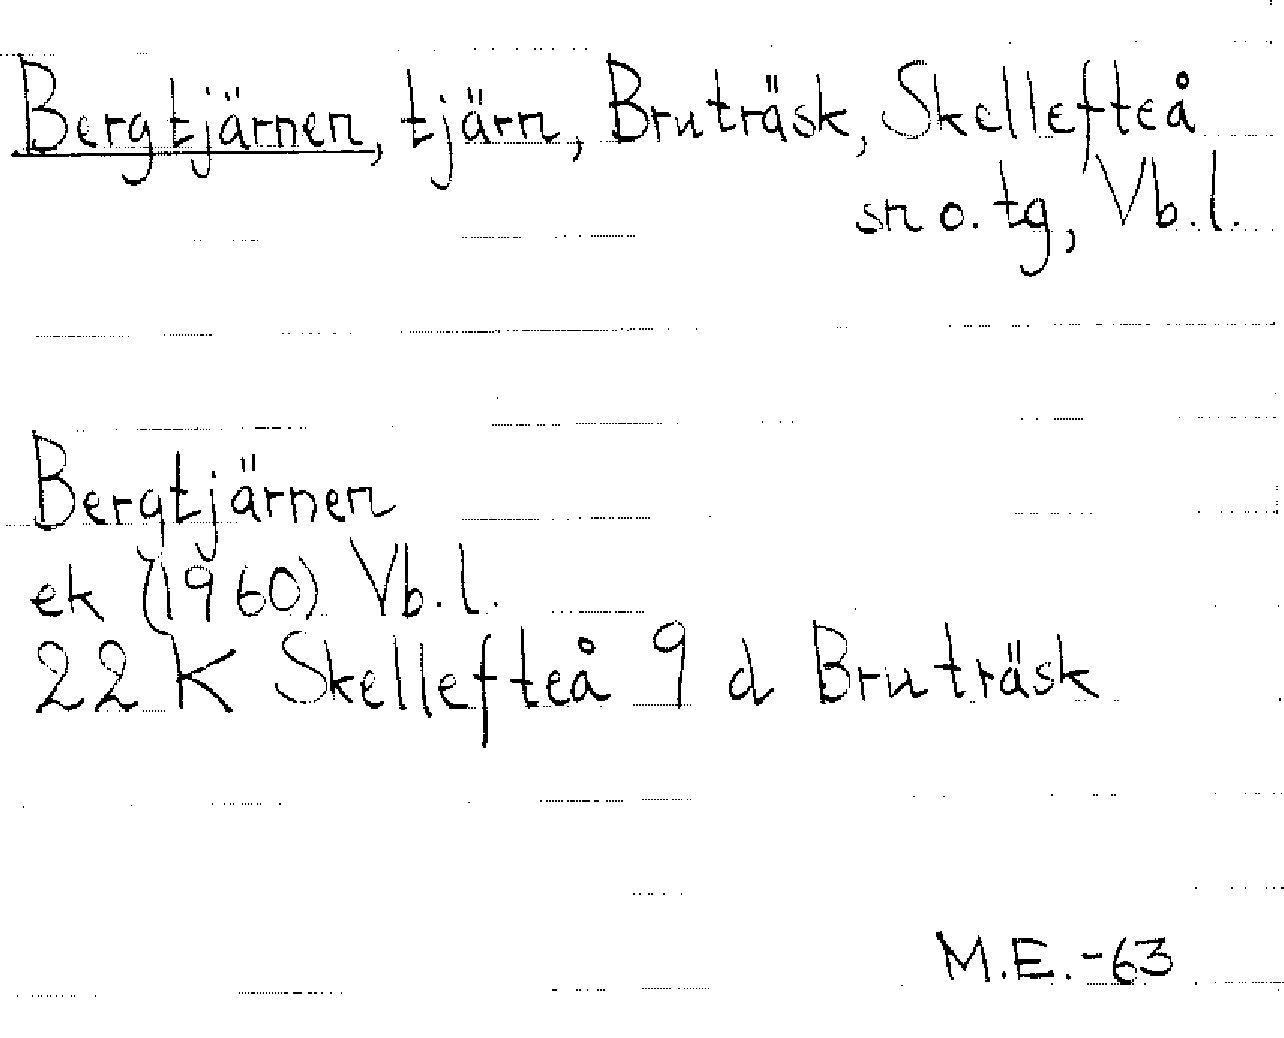 Bergtjärnen, tjärn, Bruträsk, Skellefteå
sn o. tg, Vb. l.
Bergtjärnen
ek (1960) Vb. l.
22 K Skellefteå 9 d Bruträsk
M.E. -63